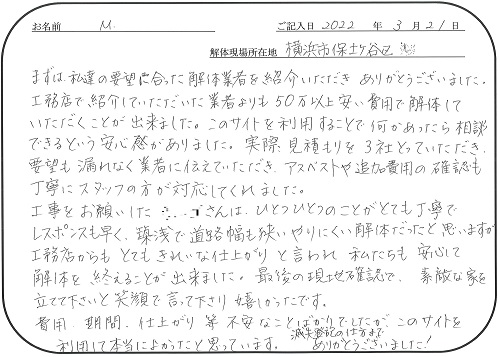 お名前 M. ご記入日 2022 年 3 月 21 日
解体現場所在地 横浜市保土ヶ谷区
まずは、私達の要望に合った解体業者を紹介いただき ありがとうございました。
工務店で紹介していただいた業者よりも50万以上安い費用で解体して
いただくことが出来ました。このサイトを利用することで何かあったら相談
できるという安心感がありました。実際、見積もりを3社とっていただき、
要望も漏れなく業者に伝えていただき、アスベストや追加費用の確認も
丁寧にスタッフの方が対応してくれました。
工事をお願いした さんは、ひとつひとつのことがとても丁寧で
レスポンスも早く、築浅で道路幅も狭いやりにくい解体だったと思いますが
工務店からも とてもきれいな仕上がり と言われ 私たちも 安心して
解体を 終えることが出来ました。最後の現地確認で、素敵な家を
立てて下さいと笑顔で言って下さり 嬉しかったです。
費用、期間、仕上がり 等 不安なことばかりでしたが、このサイトを
利用して本当によかったと思っています。滅失登記の仕方まで
ありがとうございました!